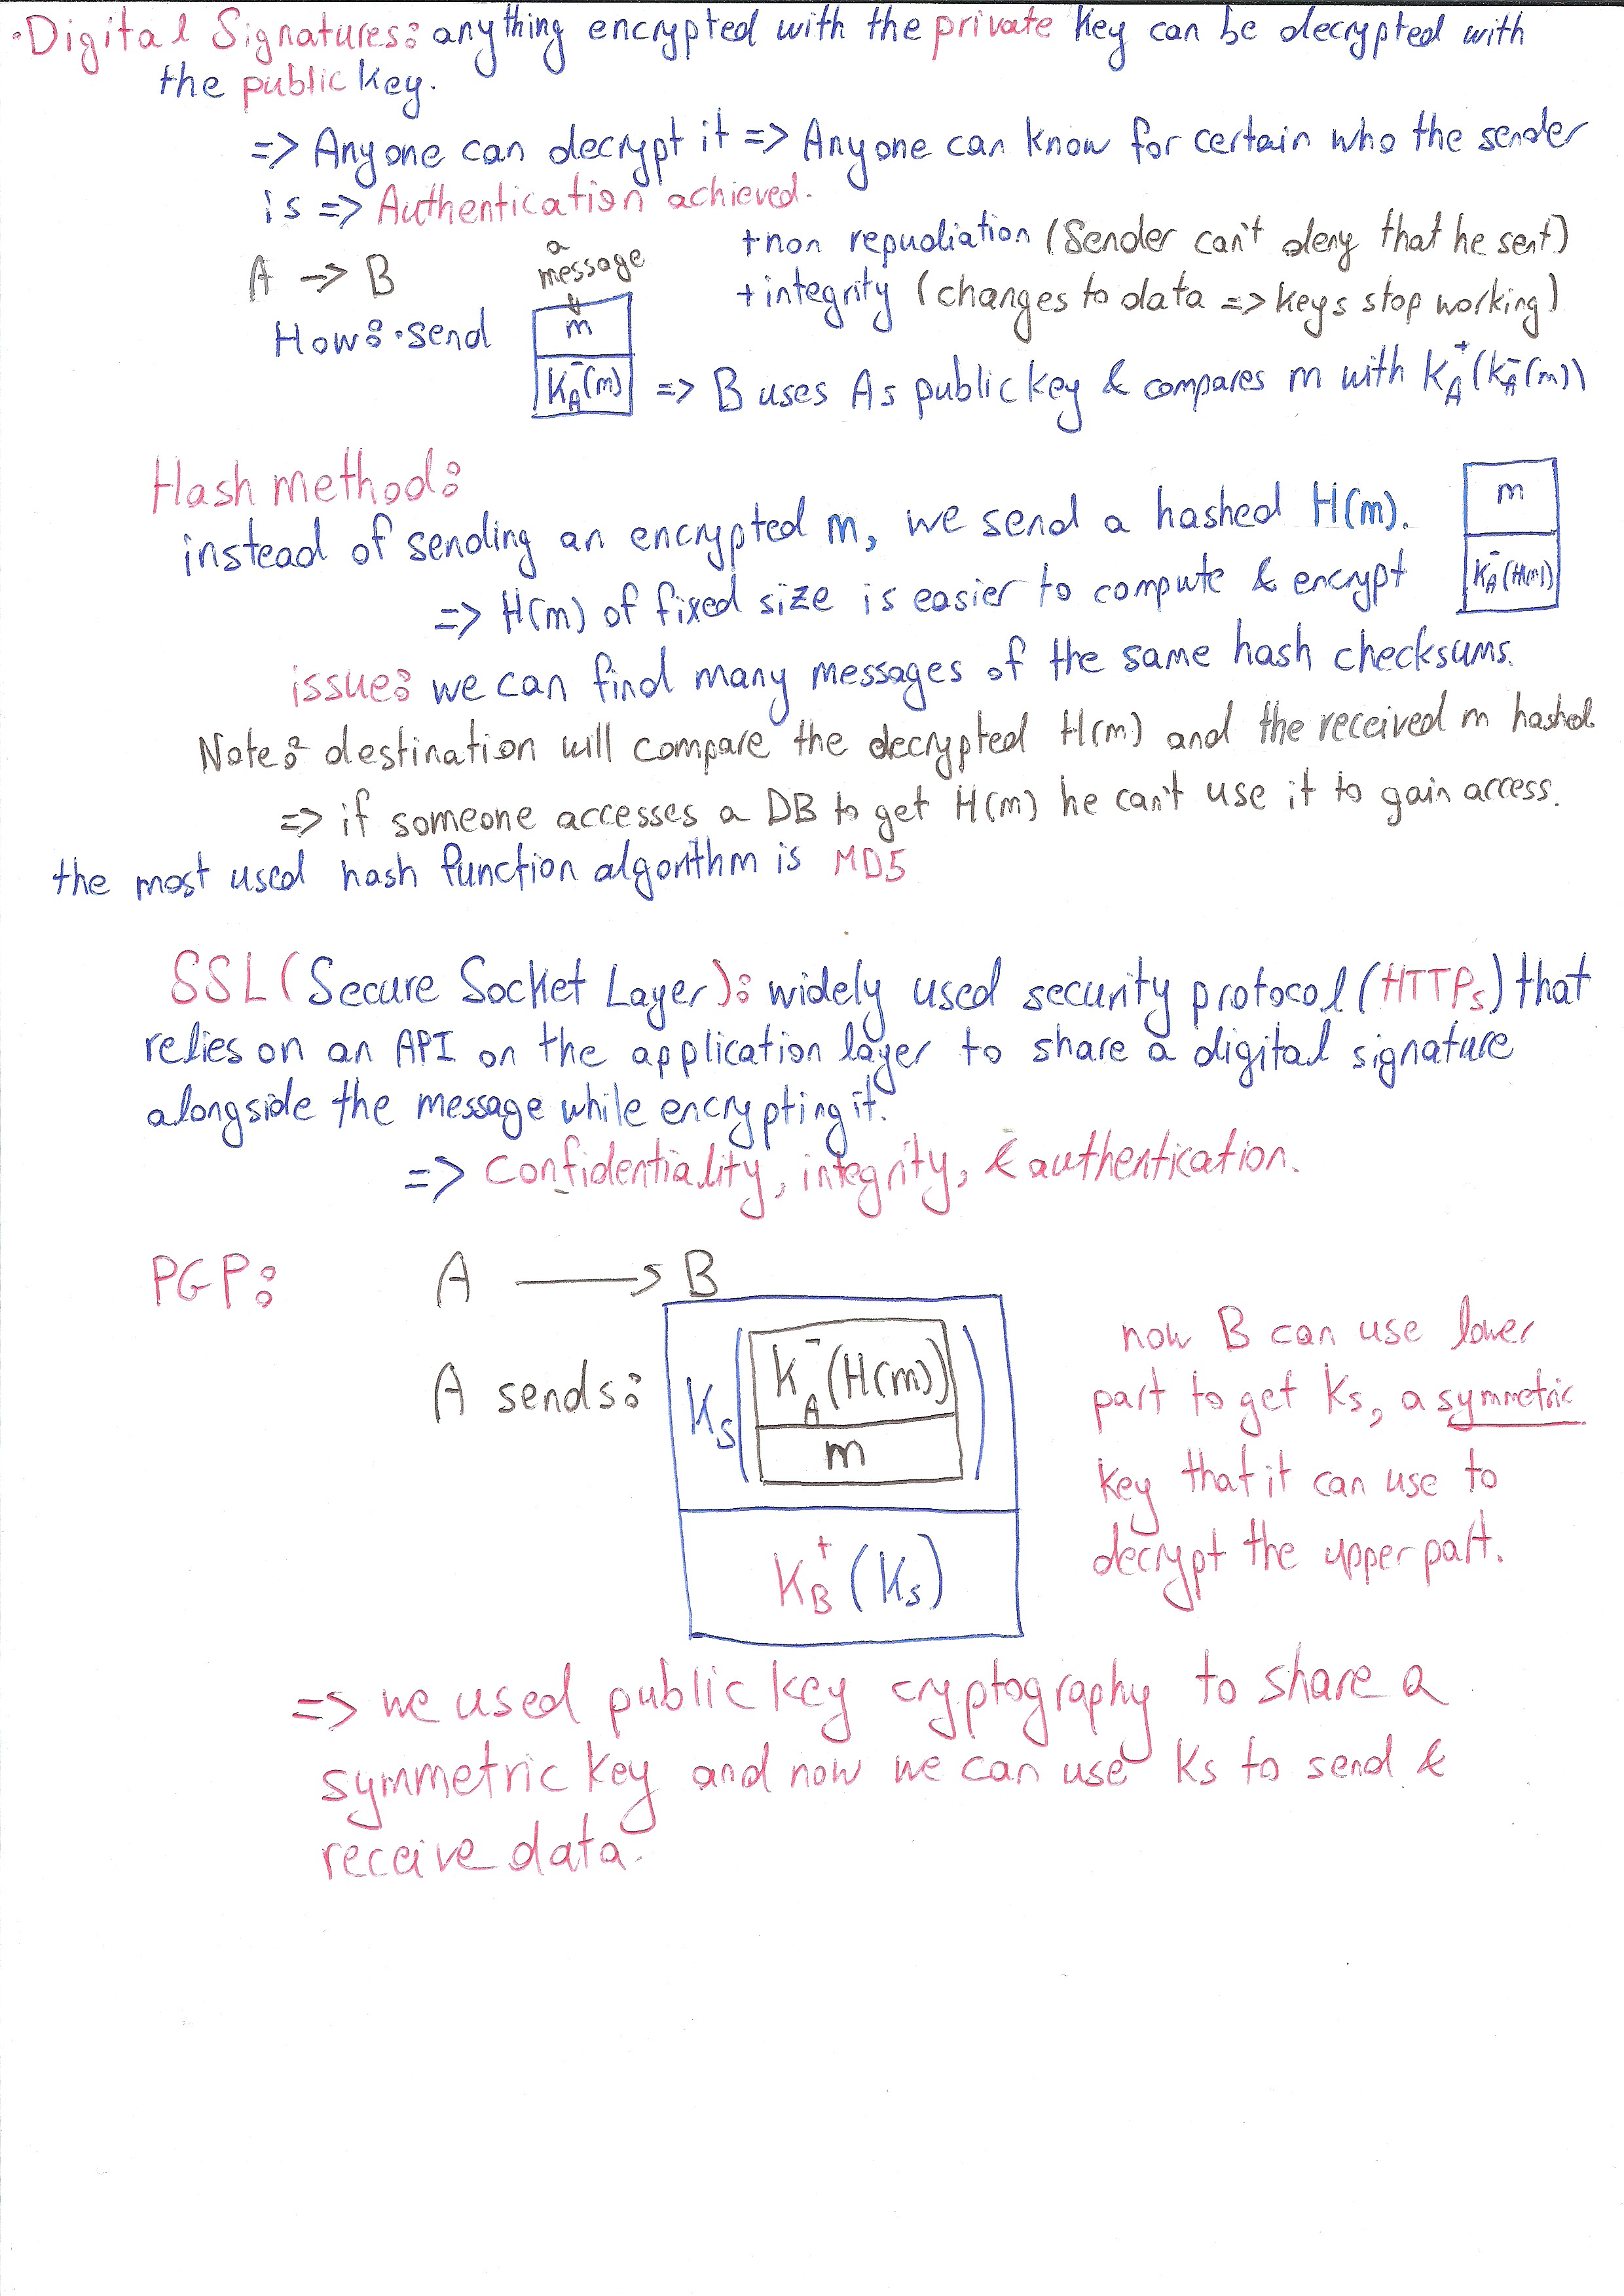 ·Digital Signatures: anything encrypted with the private key can be decrypted with
the public key.
=> Anyone can decrypt it => Anyone can know for certain who the sender
is => Authentication achieved.
+non repudiation (Sender can't deny that he sent)
A -> B
a
message
+integrity (changes to data => keys stop working)
How: ·send
m
K_A^-(m)
=> B uses As public key & compares m with K_A^+(K_A^-(m))
Hash method:
instead of sending an encrypted m, we send a hashed H(m).
m
K_A^-(H(m))
=> H(m) of fixed size is easier to compute & encrypt
issue: we can find many messages of the same hash checksums.
Note: destination will compare the decrypted H(m) and the received m hashed
=> if someone accesses a DB to get H(m) he can't use it to gain access.
the most used hash function algorithm is MD5
SSL (Secure Socket Layer): widely used security protocol (HTTPs) that
relies on an API on the application layer to share a digital signature
alongside the message while encrypting it.
=> Confidentiality, integrity, & authentication.
PGP: A -> B
A sends:
K_S( K_A^-(H(m))
m )
K_B^+(K_S)
now B can use lower
part to get Ks, a symmetric
key that it can use to
decrypt the upper part.
=> we used public key cryptography to share a
symmetric key and now we can use Ks to send &
receive data.